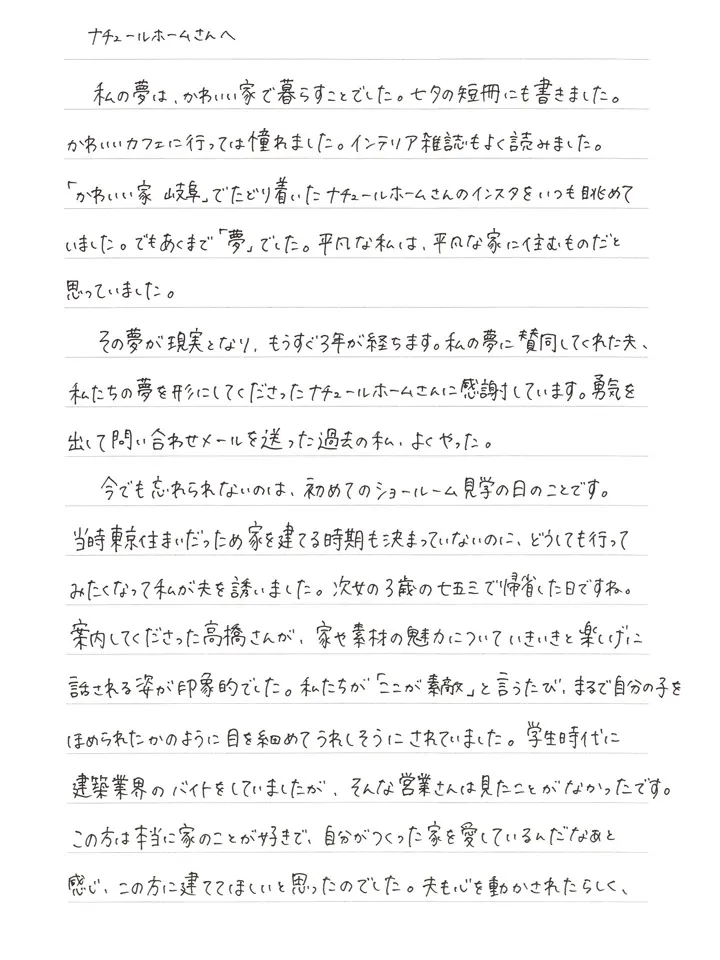 ナチュールホームさんへ
私の夢は、かわいい家で暮らすことでした。七夕の短冊にも書きました。
かわいいカフェに行っては憧れました。インテリア雑誌もよく読みました。
「かわいい家 岐阜」でたどり着いたナチュールホームさんのインスタをいつも眺めて
いました。でもあくまで「夢」でした。平凡な私は、平凡な家に住むものだと
思っていました。
その夢が現実となり、もうすぐ3年が経ちます。私の夢に賛同してくれた夫、
私たちの夢を形にしてくださったナチュールホームさんに感謝しています。勇気を
出して問い合わせメールを送った過去の私、よくやった。
今でも忘れられないのは、初めてのショールーム見学の日のことです。
当時東京住まいだっため家を建てる時期も決まっていないのに、どうしても行って
みたくなって私が夫を誘いました。次女の3歳の七五三で帰省した日ですね。
案内してくださった高橋さんが、家や素材の魅力についていきいきと楽しげに
話される姿が印象的でした。私たちが「ここが素敵」と言うたび、まるで自分の子を
ほめられたかのように目を細めてうれしそうにされていました。学生時代に
建築業界のバイトをしていましたが、そんな営業さんは見たことがなかったです。
この方は本当に家のことが好きで、自分がつくった家を愛しているんだなぁと
感じ、この方に建ててほしいと思ったのでした。夫も心を動かされたらしく、